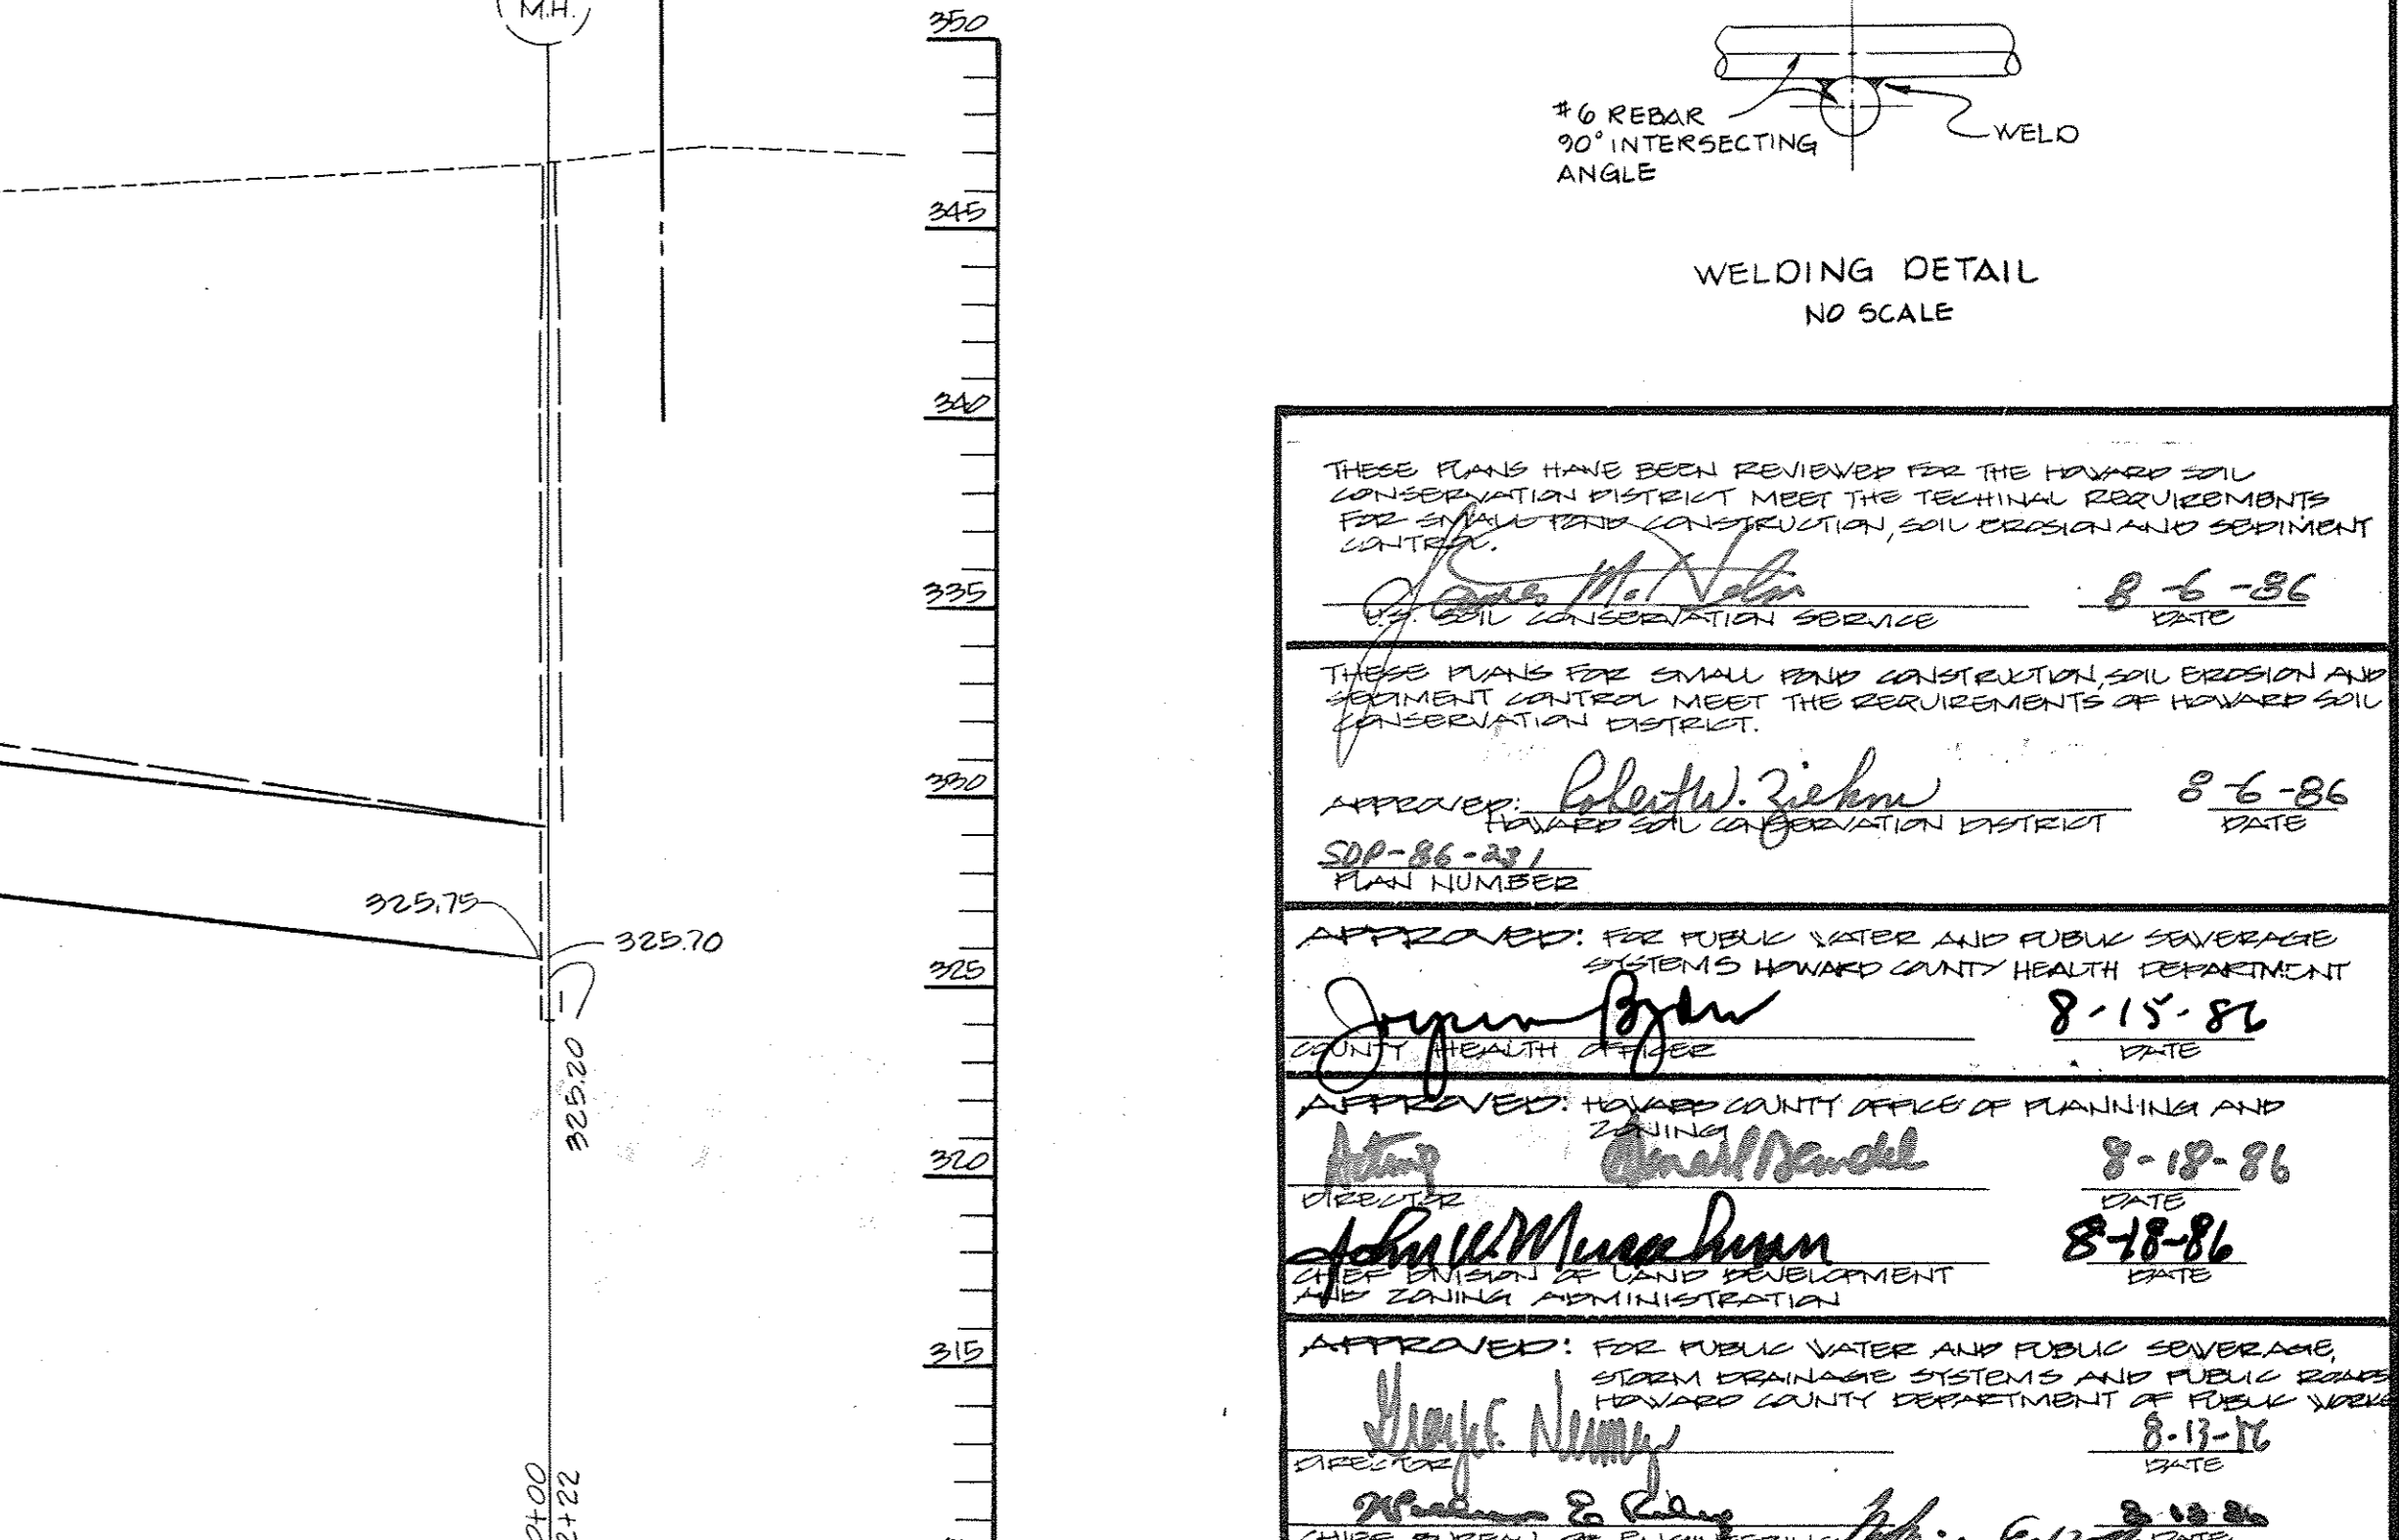 M.H.
350
345
340
335
330
325
320
315
325.75
325.70
325.20
2+22
#6 REBAR
90° INTERSECTING
ANGLE
WELD
WELDING DETAIL
NO SCALE
THESE PLANS HAVE BEEN REVIEWED FOR THE HOWARD SOIL
CONSERVATION DISTRICT MEET THE TECHINAL REQUIREMENTS
FOR SMALL POND CONSTRUCTION, SOIL EROSION AND SEDIMENT
CONTROL.
James M.
8-6-86
U.S. SOIL CONSERVATION SERVICE
DATE
THESE PLANS FOR SMALL POND CONSTRUCTION, SOIL EROSION AND
SEDIMENT CONTROL MEET THE REQUIREMENTS OF HOWARD SOIL
CONSERVATION DISTRICT.
APPROVED: Robert W. Ziehm 8-6-86
HOWARD SOIL CONSERVATION DISTRICT DATE
SDP-86-231
PLAN NUMBER
APPROVED: FOR PUBLIC WATER AND PUBLIC SEWERAGE
SYSTEMS HOWARD COUNTY HEALTH DEPARTMENT
8-15-86
COUNTY HEALTH OFFICER DATE
APPROVED: HOWARD COUNTY OFFICE OF PLANNING AND
ZONING
Acting 8-18-86
DIRECTOR DATE
John W. Musselman 8-18-86
CHIEF DIVISION OF LAND DEVELOPMENT DATE
AND ZONING ADMINISTRATION
APPROVED: FOR PUBLIC WATER AND PUBLIC SEWERAGE,
STORM DRAINAGE SYSTEMS AND PUBLIC ROADS
HOWARD COUNTY DEPARTMENT OF PUBLIC WORKS
George F. 8-13-86
DIRECTOR DATE
8-13-86
CHIEF BUREAU OF ENGINEERING DATE